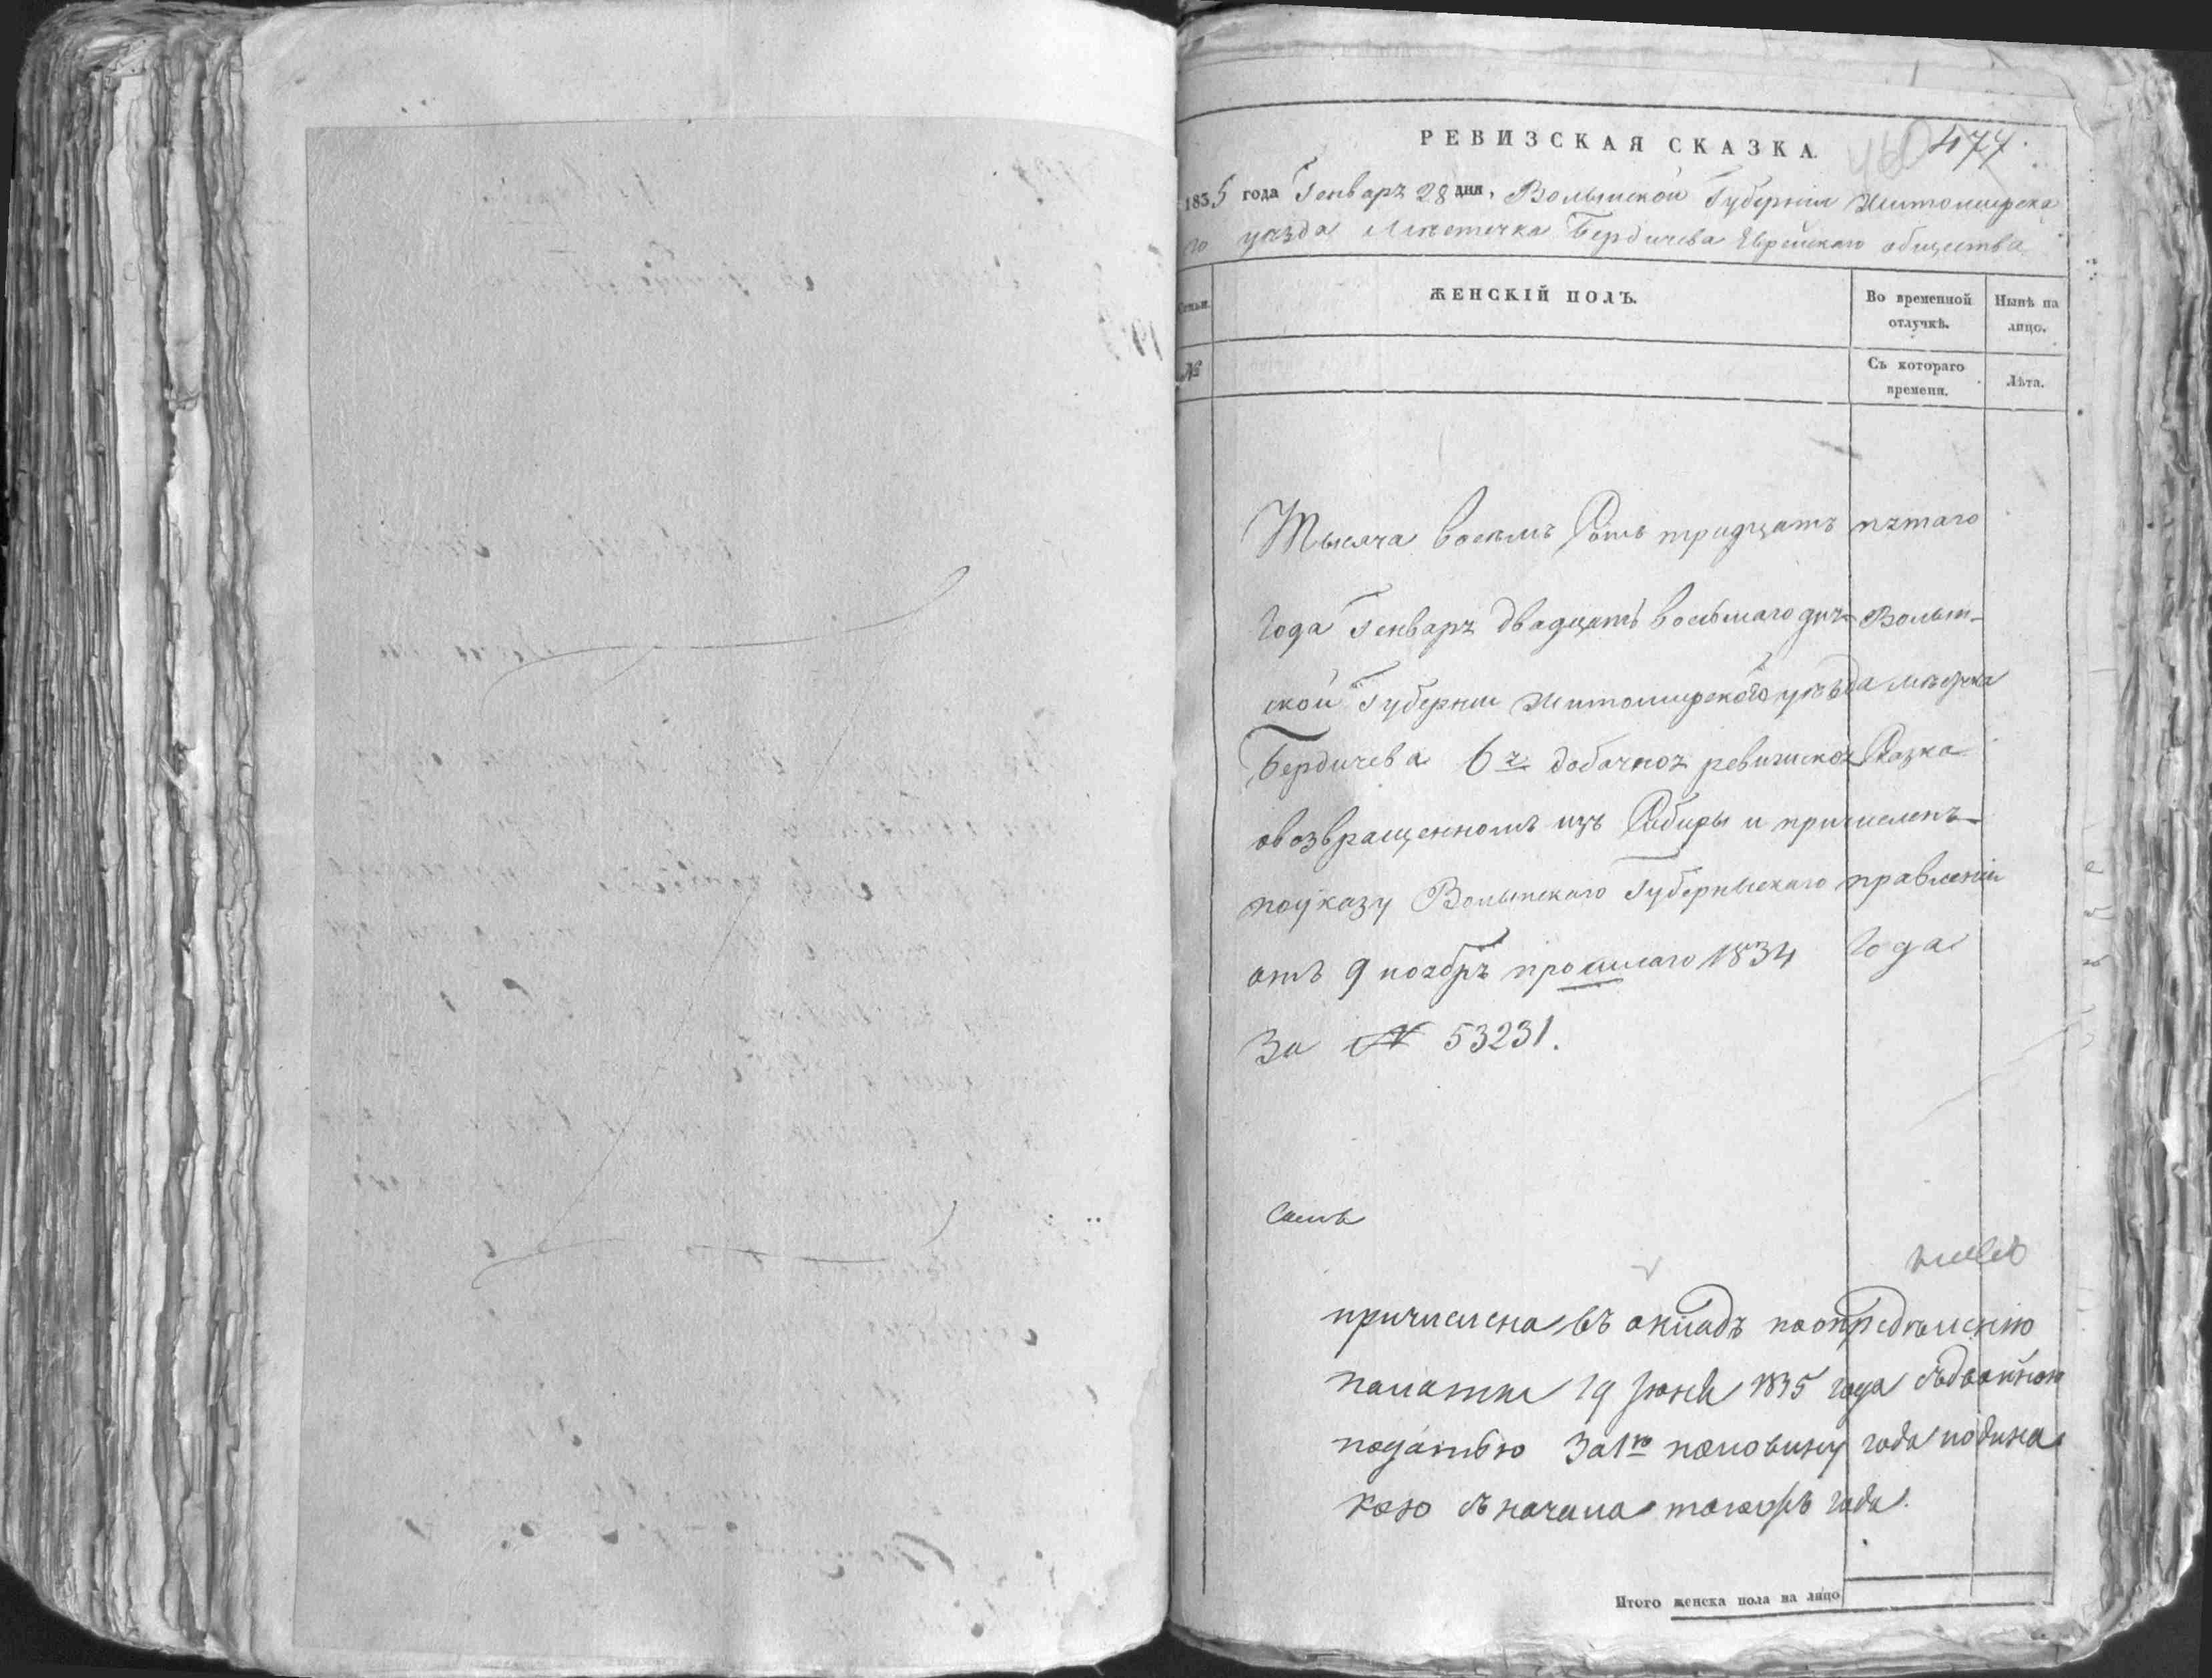 РЕВИЗСКАЯ СКАЗКА.
477.
1835 года Генваря 28 дня, Волынской Губернiи Житомирска
го уезда Местечка Бердичева Еврейскаго общества
Семьи.
ЖЕНСКIЙ ПОЛЪ.
Во временной отлучкѣ.
Нынѣ на лицо.
№
Съ котораго времени.
Лѣта.
Тысяча восемъ Сотъ тридцать пятаго
Года Генваря двадцать восьмаго дня Волын-
ской Губернии Житомирского уезда местечка
Бердичева 6я добачноя ревизскоя Сказка
овозвращенномъ изъ Сибиры и причисленъ
поуказу Волынскаго Губернскаго правленiи
отъ 9 ноября прошлаго 1834 Года
За № 53231.
причислена въ окладъ поопредѣленiю
палаты 19 Iюня 1835 года съдвойною
податью За 1ю половину года иодина
кою съ начала
года.
Итого женска пола на лицо